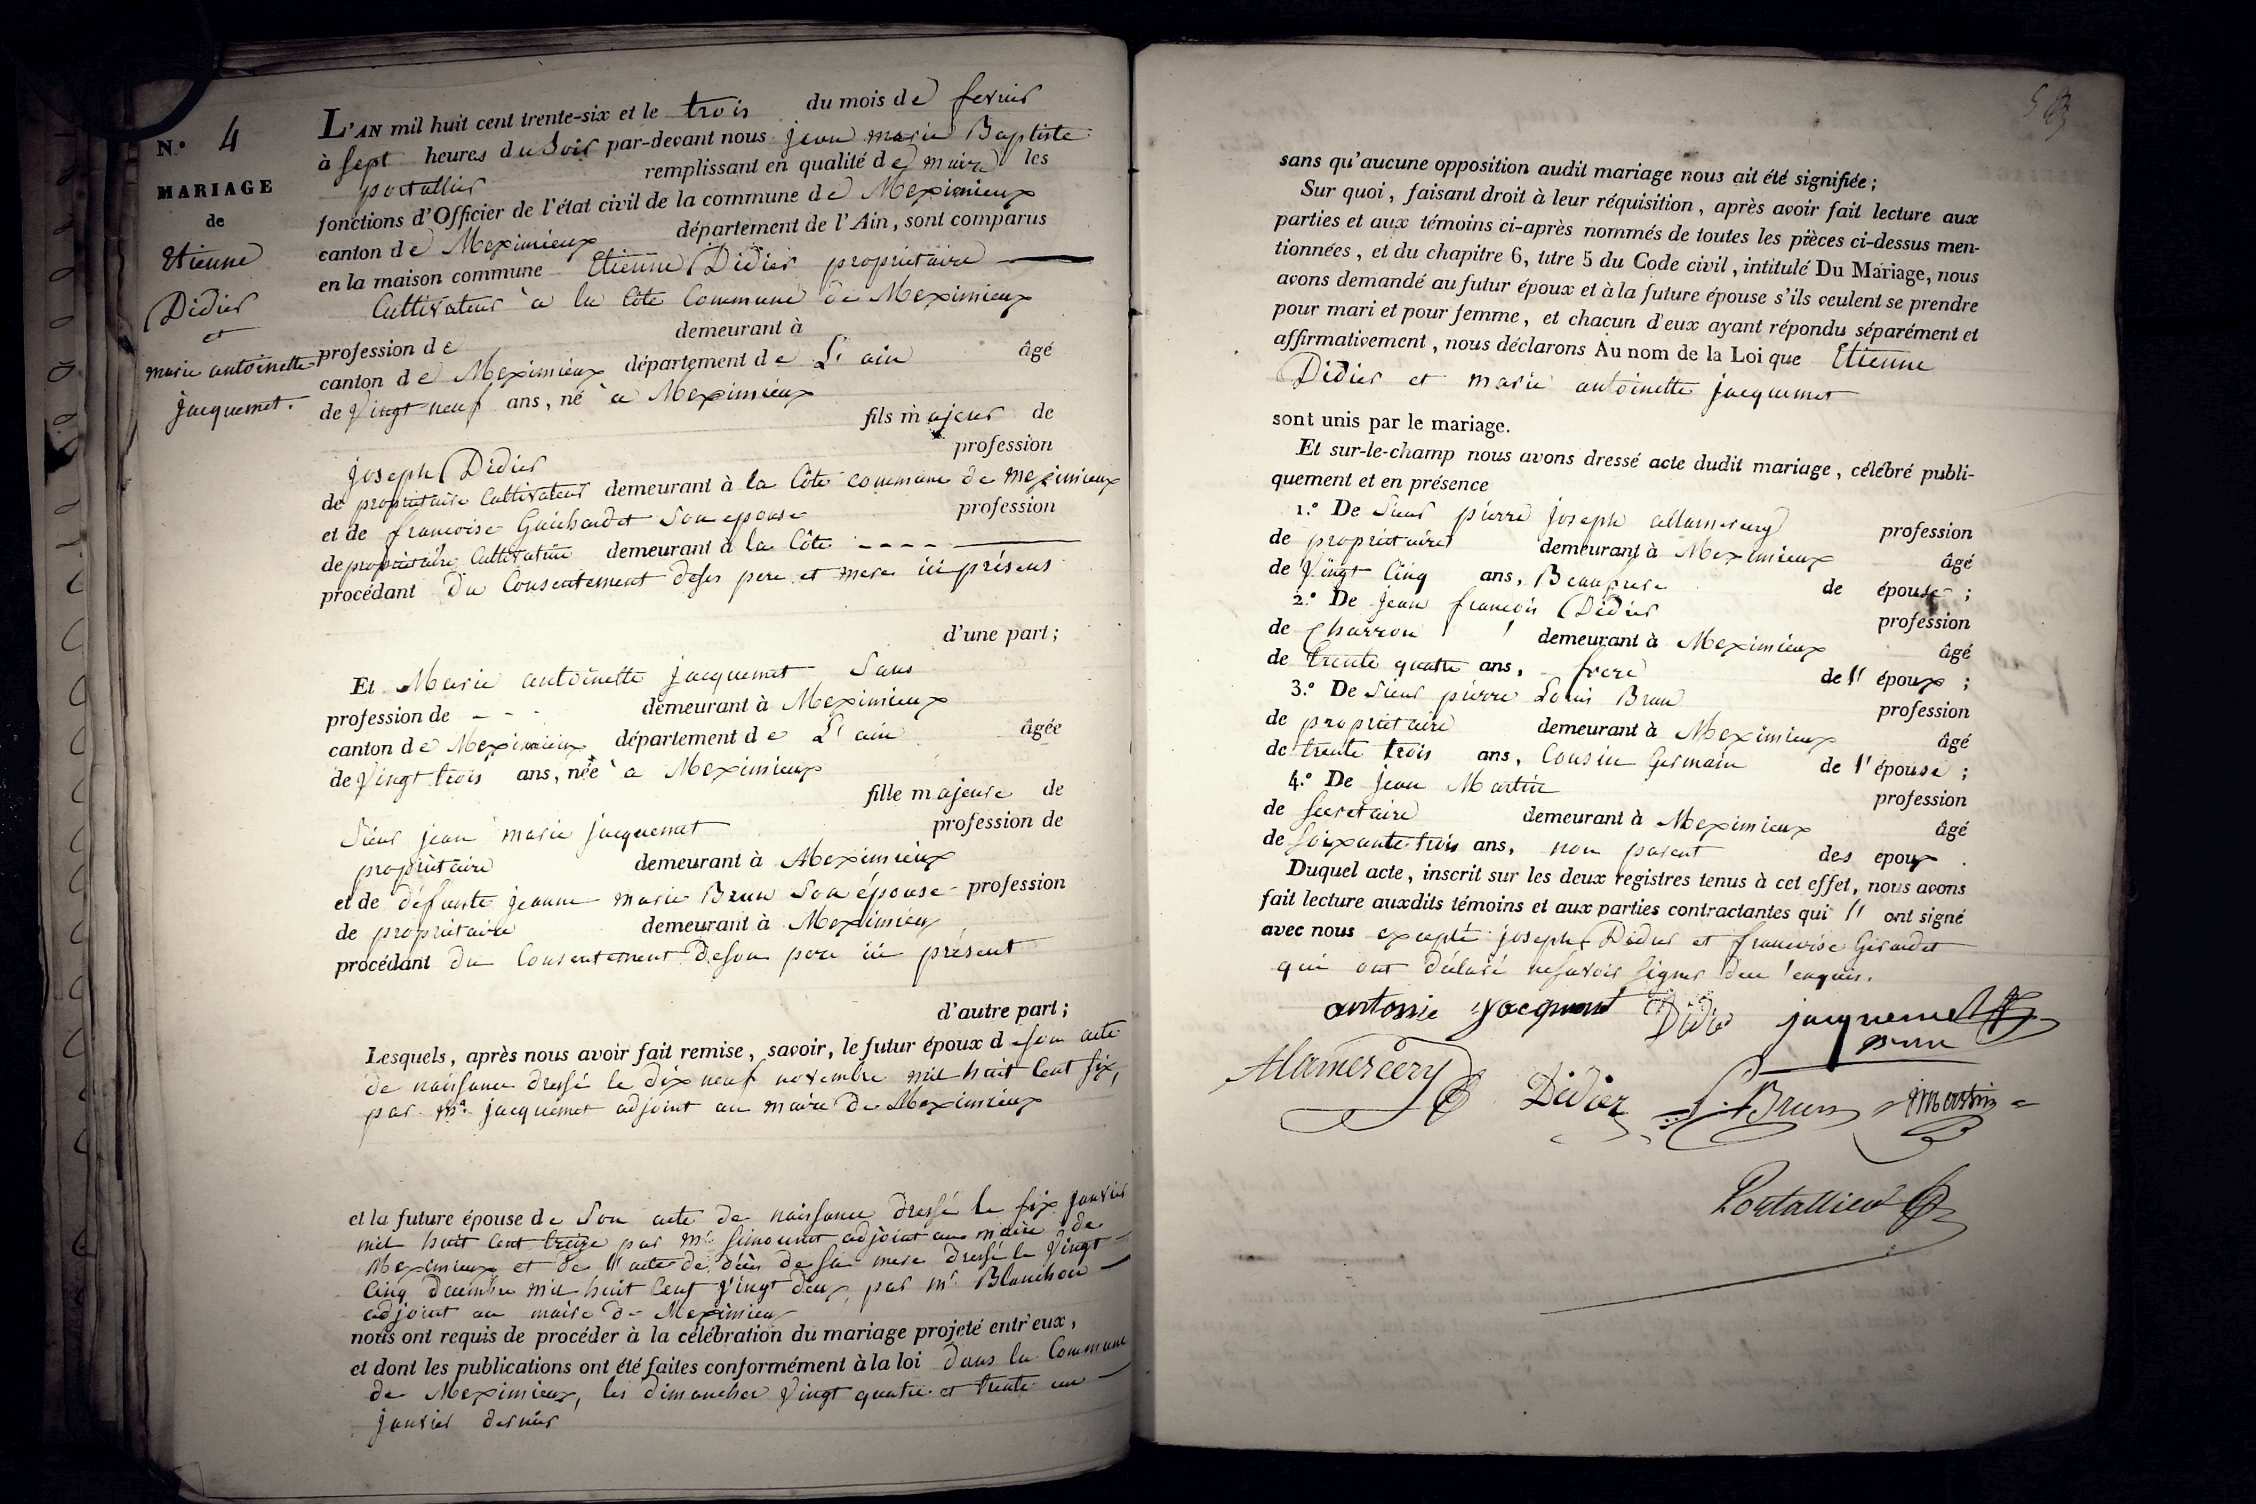 N.º 4
MARIAGE
de
Etienne
Didier
et
marie antoinette
jacquemet.
L'AN mil huit cent trente-six et le trois du mois de fevrier
à sept heures du soir par-devant nous jean marie Baptiste
portallier remplissant en qualité de maire les
fonctions d'Officier de l'état civil de la commune de Meximieux
canton de Meximieux département de l'Ain, sont comparus
en la maison commune Etienne Didier propriétaire
Cultivateur à la Côte Commune de Meximieux
profession de demeurant à
canton de Meximieux département de L'ain âgé
de Vingt neuf ans, né à Meximieux
fils majeur de
joseph Didier profession
de propriétaire Cultivateur demeurant à la Côte commune de meximieux
et de francoise Guichardet Son epouse profession
de propriétaire Cultivatrice demeurant à la Côte - - - -
procédant du Consentement deses pere et mere ici présens
d'une part;
Et Marie antoinette jacquemet Sans
profession de - - - demeurant à Meximieux
canton de Meximieux département de L'ain âgée
de Vingt trois ans, née à Meximieux
fille majeure de
Sieur jean marie jacquemet profession de
propriétaire demeurant à Meximieux
et de défunte jeanne marie Brun Son épouse profession
de propriétaire demeurant à Meximieux
procédant du Consentement Deson pere ici présent
d'autre part;
Lesquels, après nous avoir fait remise, savoir, le futur époux d son acte
de naissance dressé le dix neuf novembre mil huit Cent six,
par mr. jacquemet adjoint au maire de Meximieux
et la future épouse de Son acte de naissance dressé le six janvier
mil huit Cent treize par mr. adjoint au maire de
Meximieux et de l'acte de décès de sa mere dressé le Vingt
Cinq decembre mil huit Cent Vingt deux, par mr. Blanchon
adjoint au maire de Meximieux
nous ont requis de procéder à la célébration du mariage projeté entr'eux,
et dont les publications ont été faites conformément à la loi dans la Commune
de Meximieux, les dimanches Vingt quatre et trente un
janvier dernier
sans qu'aucune opposition audit mariage nous ait été signifiée;
Sur quoi, faisant droit à leur réquisition, après avoir fait lecture aux
parties et aux témoins ci-après nommés de toutes les pièces ci-dessus men-
tionnées, et du chapitre 6, titre 5 du Code civil, intitulé Du Mariage, nous
avons demandé au futur époux et à la future épouse s'ils veulent se prendre
pour mari et pour femme, et chacun d'eux ayant répondu séparément et
affirmativement, nous déclarons Au nom de la Loi que Etienne
Didier et marie antoinette jacquemet
sont unis par le mariage.
Et sur-le-champ nous avons dressé acte dudit mariage, célébré publi-
quement et en présence
1.º De Sieur pierre joseph allamercery profession
de propriétaire demeurant à Meximieux âgé
de Vingt Cinq ans, Beaufrere de épouse;
2.º De jean francois Didier profession
de Charron demeurant à Meximieux âgé
de trente quatre ans, frere de l'époux;
3.º De Sieur pierre Louis Brun profession
de propriétaire demeurant à Meximieux âgé
de trente trois ans, Cousin Germain de l'épouse;
4.º De jean Martin profession
de Secretaire demeurant à Meximieux âgé
de Soixante trois ans, non parent des epoux.
Duquel acte, inscrit sur les deux registres tenus à cet effet, nous avons
fait lecture auxdits témoins et aux parties contractantes qui ont signé
avec nous excepté joseph Didier et francoise
qui ont déclaré nesavoir signer dece enquis.
antonie jacquemet Didier jacquemet
Brun
Alamercery Didier L. Brun jmartin
Portallier